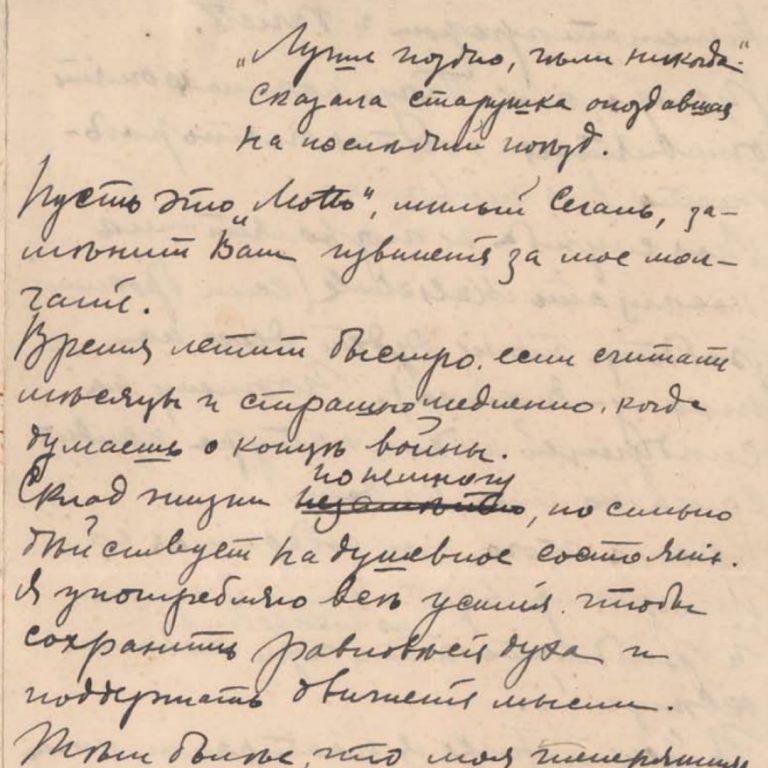 „Лучше поздно, чѣмъ никогда“
сказала старушка опоздавшая
на послѣдній поѣзд.
Пусть это „Motto“, милый Сегаль, за-
мѣнит Вам извиненія за мое мол-
чаніе.
Время летит быстро, если считать
мѣсяцы и страшно медленно, когда
думаешь о концѣ войны.
Склад жизни понемногу
незамѣтно, но сильно
дѣйствует на душевное состояніе.
Я употребляю всѣ усилія, чтобы
сохранить равновѣсіе духа и
поддержать движенія мысли.
Тѣм болѣе, что моя теперешняя